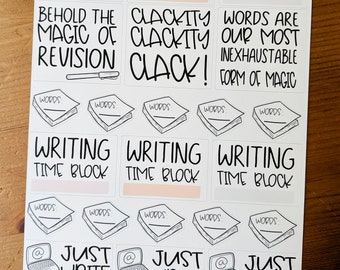 BEHOLD THE
MAGIC OF
REVISION
CLACKITY
CLACKITY
CLACK!
WORDS ARE
OUR MOST
INEXHAUSTABLE
FORM OF MAGIC
WORDS
WORDS
WORDS
WORDS
WORDS
WRITING
TIME BLOCK
WRITING
TIME BLOCK
WRITING
TIME BLOCK
WORDS
WORDS
WORDS
WORDS
WORDS
@
JUST
WRITE
@
JUST
@
JUST